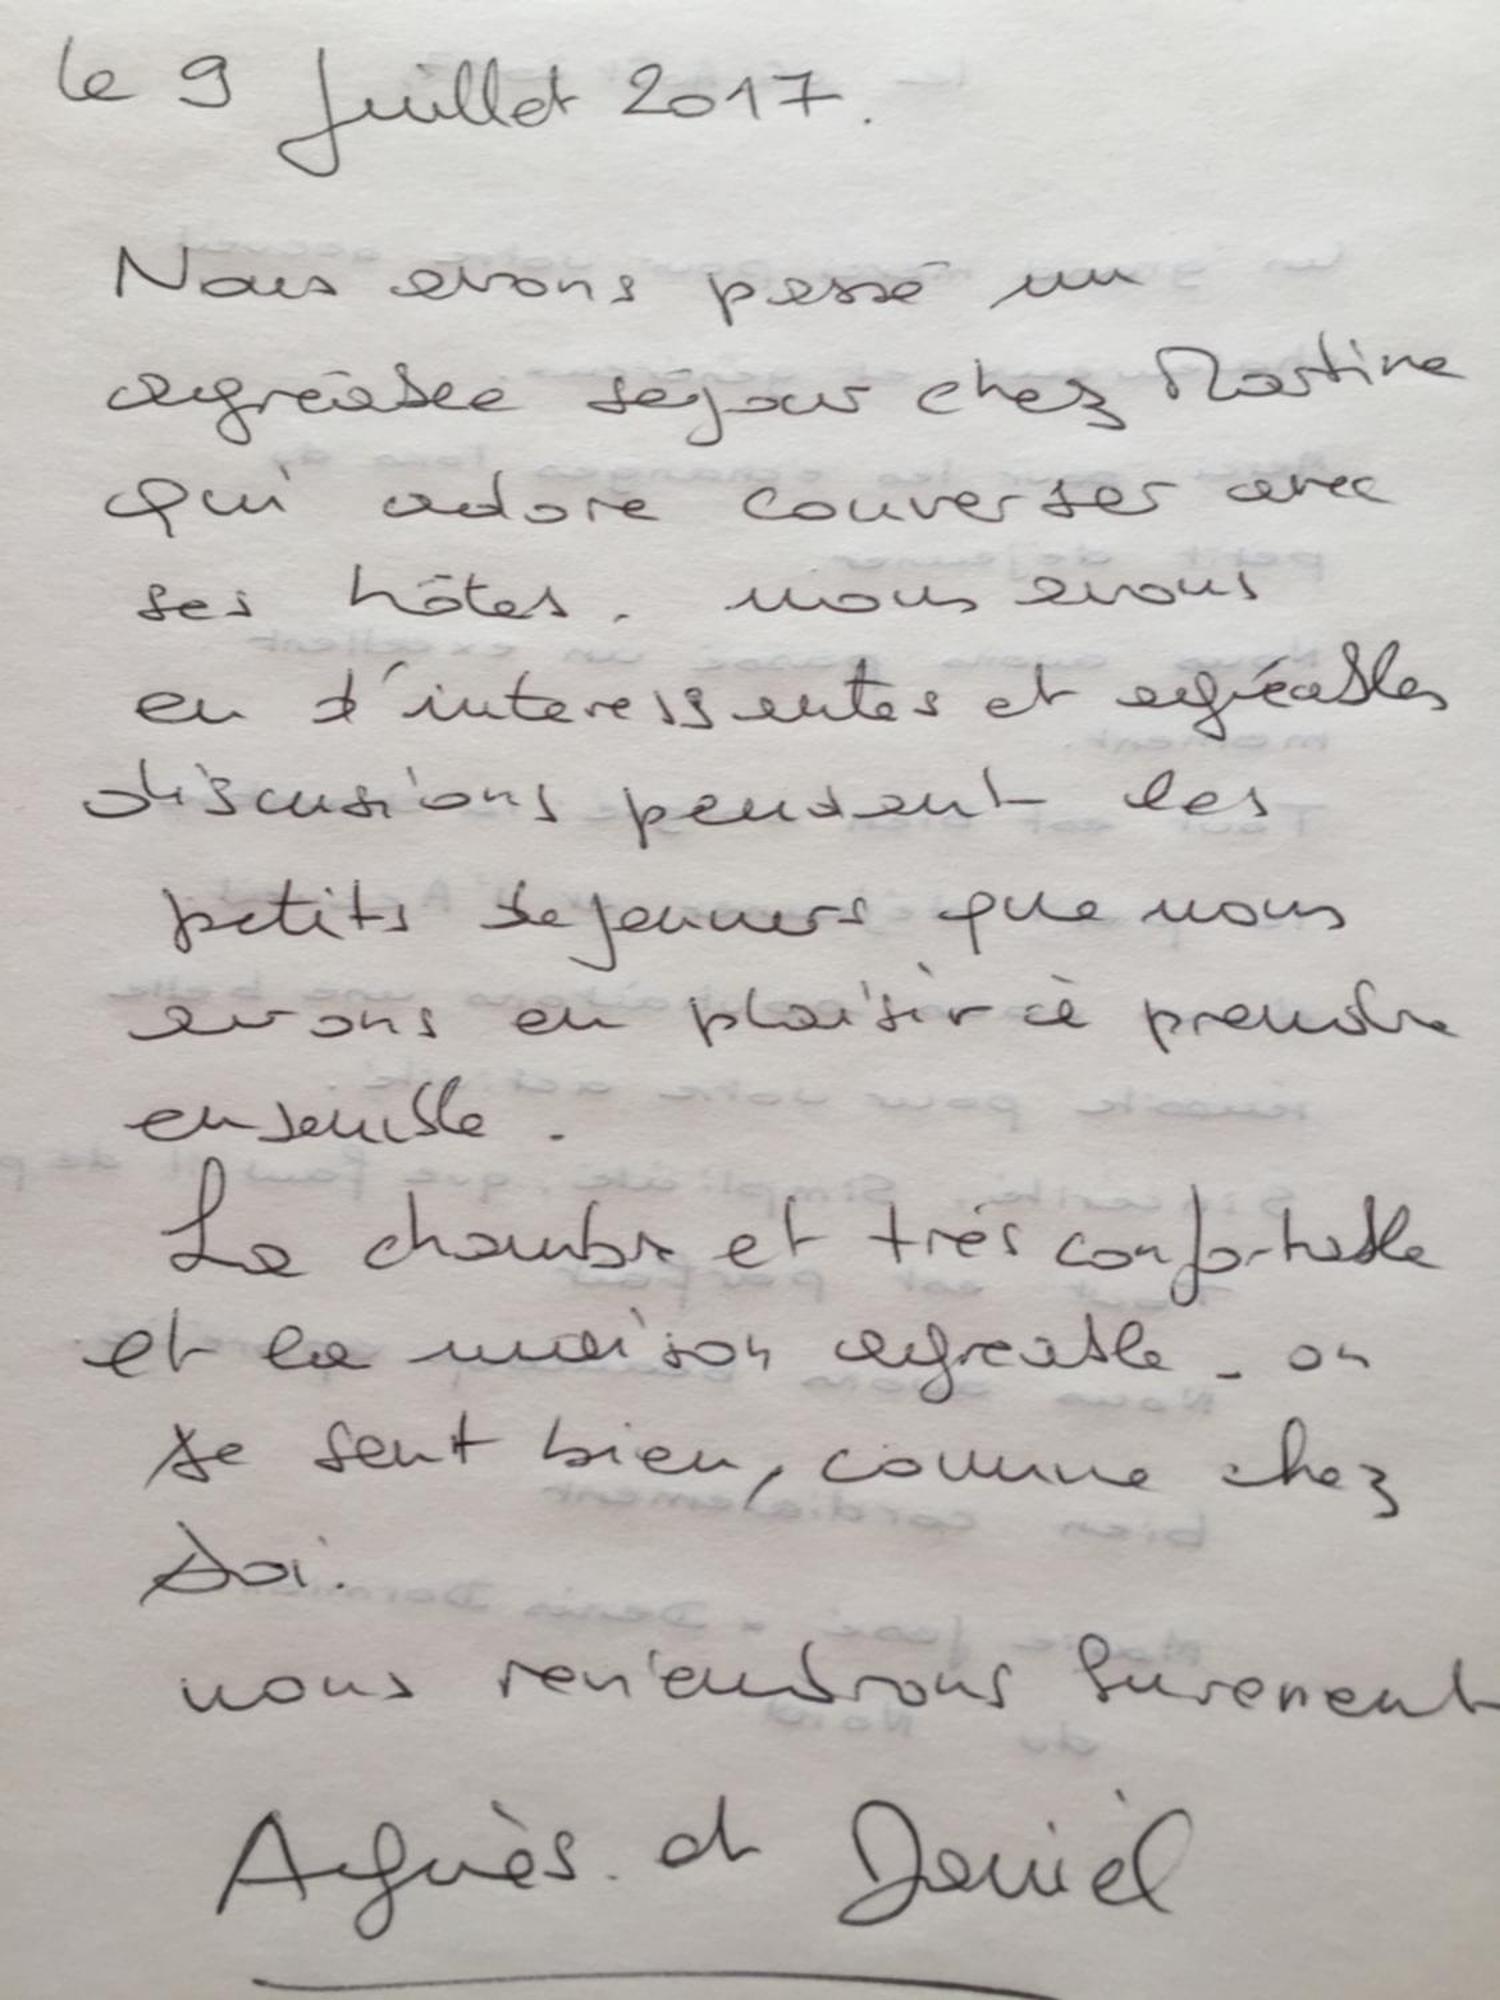 le 9 Juillet 2017.
Nous avons passé un
agréable séjour chez Martine
qui adore converser avec
ses hôtes. nous avons
eu d'interessantes et agréables
discusions pendant les
petits dejeuners que nous
avons eu plaisir à prendre
ensemble.
La chambre et très confortable
et la maison agreable. on
se sent bien, comme chez
soi.
nous reviendrons surement
Agnès et Daniel